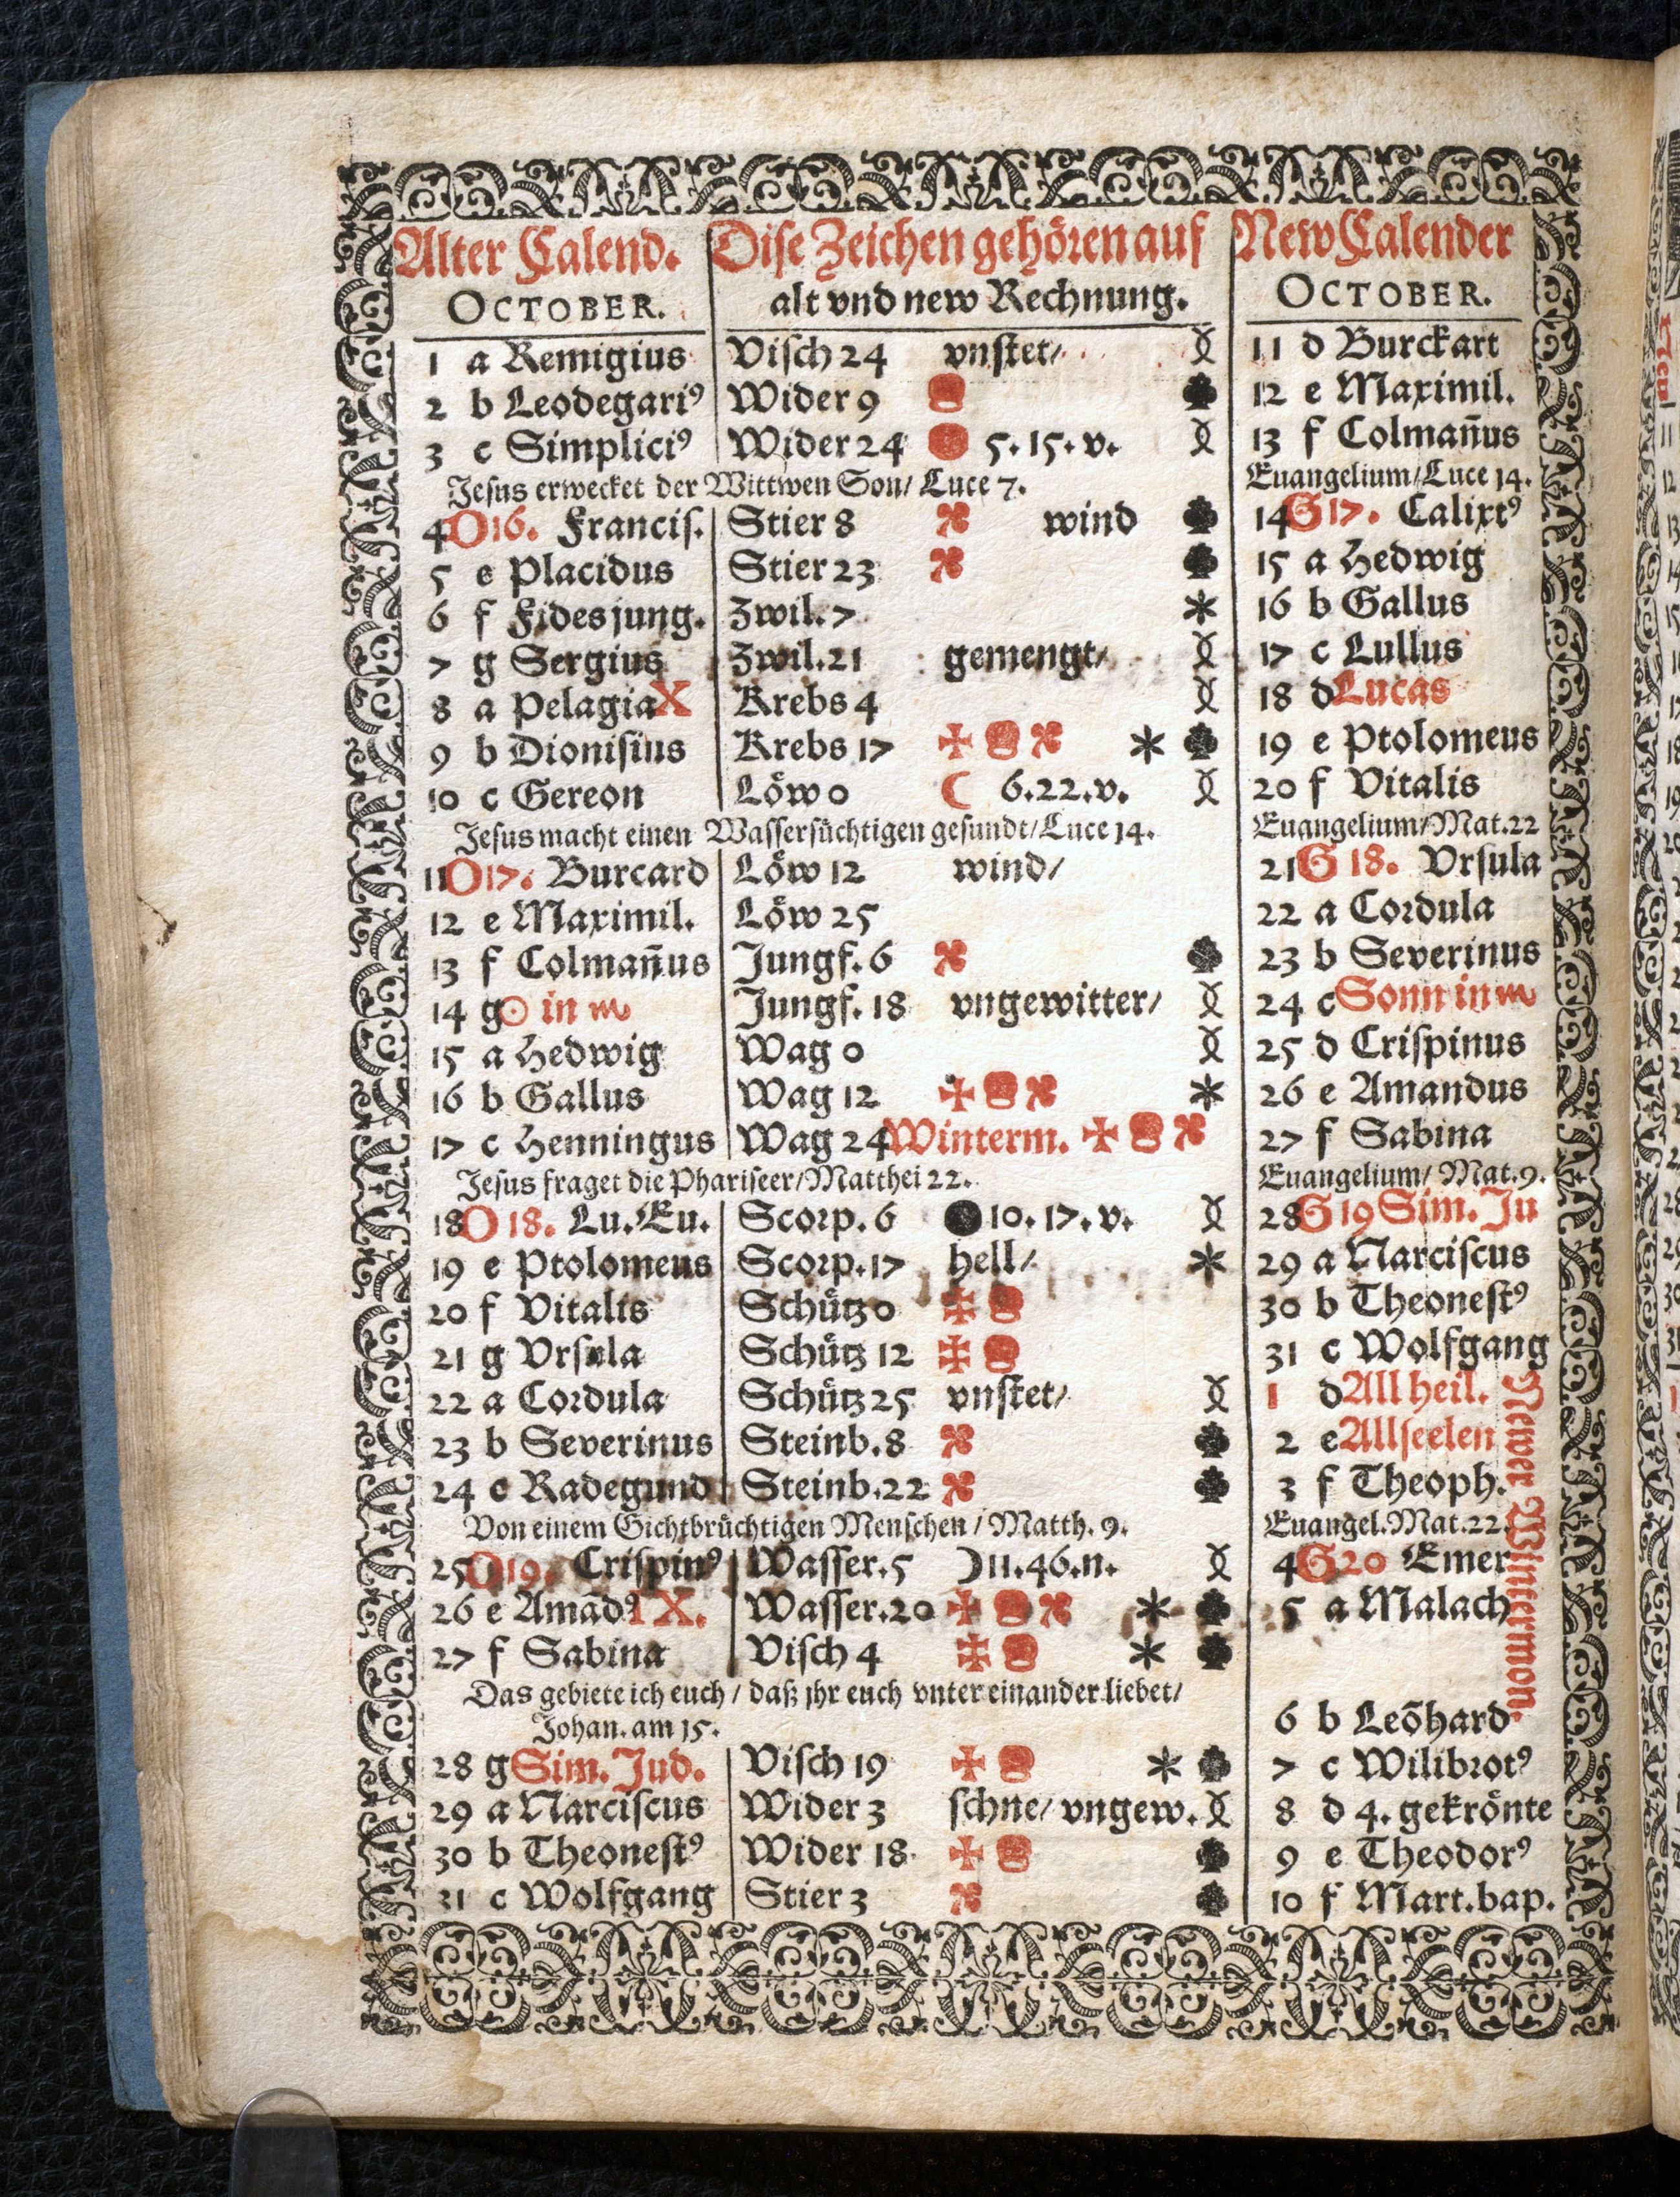 Alter Calend. Dise Zeichen gehören auf New Calender
OCTOBER. alt vnd new Rechnung. OCTOBER.
1 a Remigius Visch 24 vnstet/ 11 d Burckart
2 b Leodegariꝰ Wider 9 12 e Maximil.
3 c Simpliciꝰ Wider 24 5. 15. v. 13 f Colman̄us
Jesus erwecket der Wittwen Son/ Luce 7. Euangelium/Luce 14.
4 O16. Francis. Stier 8 wind 14 G17. Calixtꝰ
5 e Placidus Stier 23 15 a Hedwig
6 f Fides jung. Zwil. 7 ✻ 16 b Gallus
7 g Sergius Zwil. 21 gemengt/ 17 c Lullus
8 a Pelagia X Krebs 4 18 d Lucas
9 b Dionisius Krebs 17 ✻ 19 e Ptolomeus
10 c Gereon Löw 0 ☾ 6.22.v. 20 f Vitalis
Jesus macht einen Wassersüchtigen gesundt/Luce 14. Euangelium/Mat.22
11 O17. Burcard Löw 12 wind/ 21 G 18. Vrsula
12 e Maximil. Löw 25 22 a Cordula
13 f Colman̄us Jungf. 6 23 b Severinus
14 g ☉ in ♏ Jungf. 18 vngewitter/ 24 c Sonn in ♏
15 a Hedwig Wag 0 25 d Crispinus
16 b Gallus Wag 12 ✻ 26 e Amandus
17 c Henningus Wag 24 Winterm. 27 f Sabina
Jesus fraget die Phariseer/Matthei 22. Euangelium/ Mat.9.
18 O 18. Lu. Eu. Scorp. 6 10. 17. v. 28 G 19 Sim. Ju
19 e Ptolomeus Scorp. 17 hell/ ✻ 29 a Narciscus
20 f Vitalis Schütz 0 30 b Theonestꝰ
21 g Vrsula Schütz 12 31 c Wolfgang
22 a Cordula Schütz 25 vnstet/ 1 d All heil.
23 b Severinus Steinb. 8 2 e Allseelen
24 c Radegund Steinb. 22 3 f Theoph.
Von einem Gichtbrüchtigen Menschen / Matth. 9. Euangel. Mat. 22.
25 O19. Crispinꝰ Wasser. 5 ☽ 11. 46. n. 4 G20 Emer
26 e Amādꝰ IX. Wasser. 20 ✻ 5 a Malach
27 f Sabina Visch 4 ✻
Newer Wintermon.
Das gebiete ich euch / daß jhr euch vnter einander liebet/
Johan. am 15. 6 b Leōhard
28 g Sim. Jud. Visch 19 ✻ 7 c Wilibrotꝰ
29 a Narciscus Wider 3 schne/ vngew. 8 d 4. gekrönte
30 b Theonestꝰ Wider 18 9 e Theodorꝰ
31 c Wolfgang Stier 3 10 f Mart. bap.